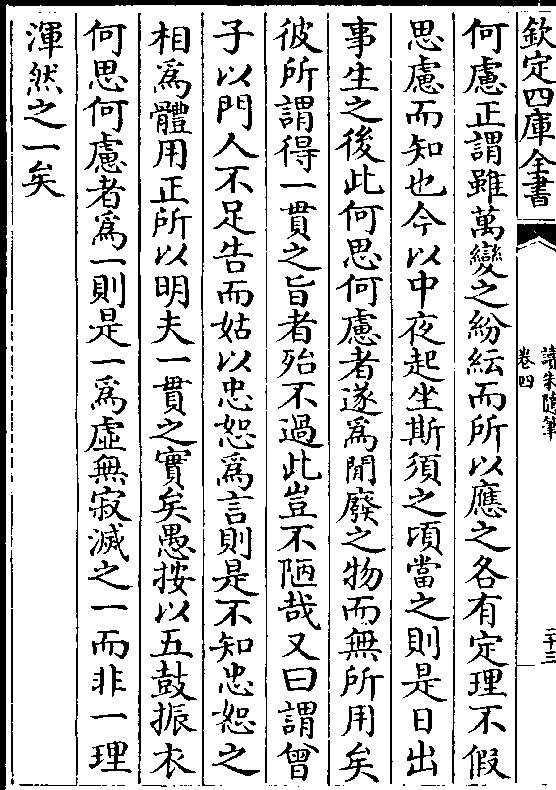 欽定四庫全書
讀朱隨筆
卷四
二十三
何慮正謂雖萬變之紛紜而所以應之各有定理不假
思慮而知也今以中夜起坐斯須之頃當之則是日出
事生之後此何思何慮者遂為閒廢之物而無所用矣
彼所謂得一貫之旨者殆不過此豈不陋哉又曰謂曾
子以門人不足告而姑以忠恕為言則是不知忠恕之
相為體用正所以明夫一貫之實矣愚按以五鼓振衣
何思何慮者為一則是一為虛無寂滅之一而非一理
渾然之一矣